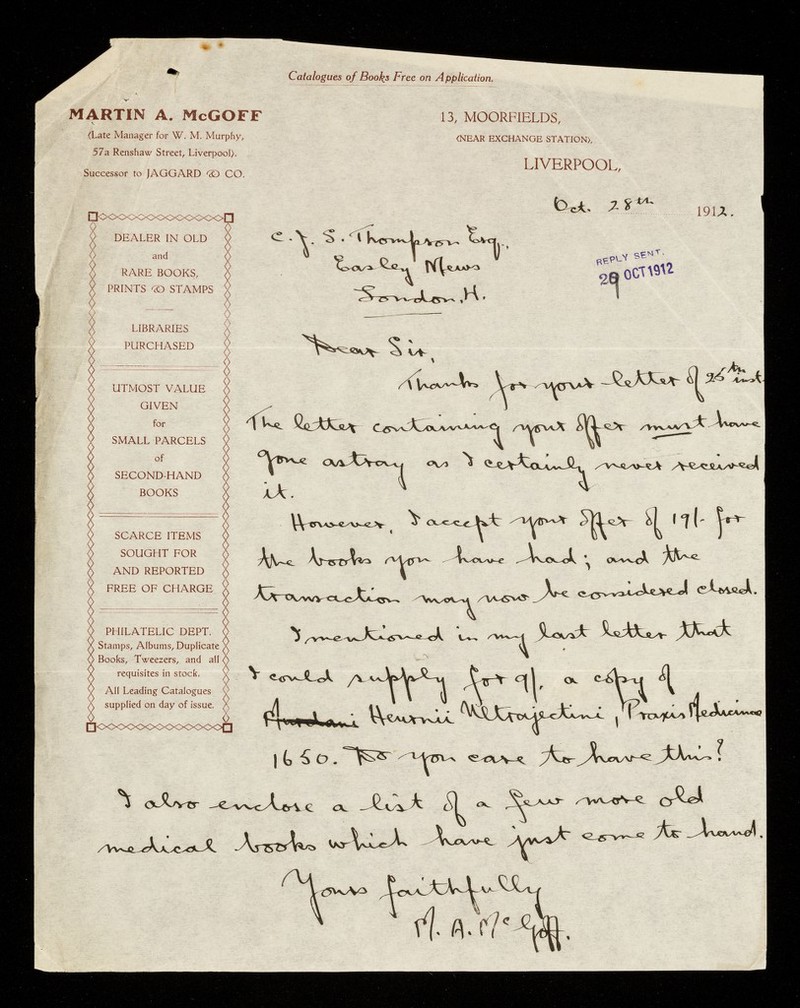 Catalogues of Books Free on Application.
MARTIN A. McGOFF
(Late Manager for W. M. Murphy,
57a Renshaw Street, Liverpool).
Successor to JAGGARD & CO.
13, MOORFIELDS,
(NEAR EXCHANGE STATION),
LIVERPOOL,
Oct. 28th 1912.
DEALER IN OLD
and
RARE BOOKS,
PRINTS & STAMPS
LIBRARIES
PURCHASED
UTMOST VALUE
GIVEN
for
SMALL PARCELS
of
SECOND-HAND
BOOKS
SCARCE ITEMS
SOUGHT FOR
AND REPORTED
FREE OF CHARGE
PHILATELIC DEPT.
Stamps, Albums, Duplicate
Books, Tweezers, and all
requisites in stock.
All Leading Catalogues
supplied on day of issue.
C. J. S. Thompson Esq.,
Easley Mews
London, W.
REPLY SENT.
29 OCT 1912
Dear Sir,
Thanks for your letter of 25th inst.
The letter containing your offer must have
gone astray as I certainly never received
it.
However, I accept your offer of 19/- for
the books you have had; and the
transaction may now be considered closed.
I mentioned in my last letter that
I could supply for 9/. a copy of
Heurnii Ultrajectini, Praxis Medicinae
1650. Do you care to have this?
I also enclose a list of a few more old
medical books which have just come to hand.
Yours faithfully
M. A. McGoff.